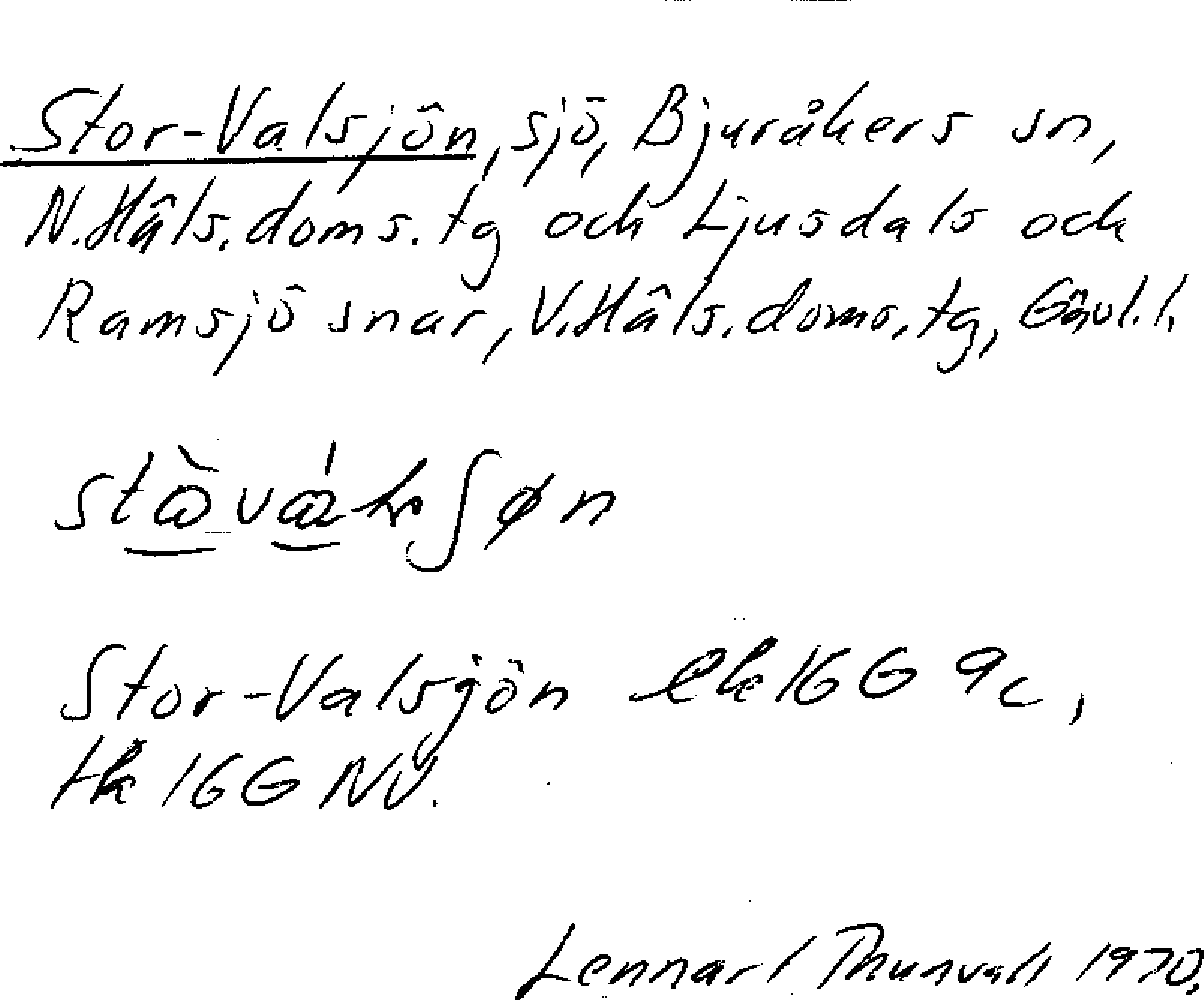 Stor-Valsjön, sjö, Bjuråkers sn,
N.Häls.doms.tg och Ljusdals och
Ramsjö snar, V.Häls.doms.tg, Gävl.l.
Stor-Valsjön ek 16G 9c,
tk 16G NV.
Lennart Thunvall 1970.